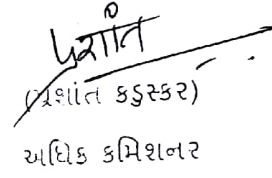 પ્રશાંત
(પ્રશાંત કડુસ્કર)
અધિક કમિશનર